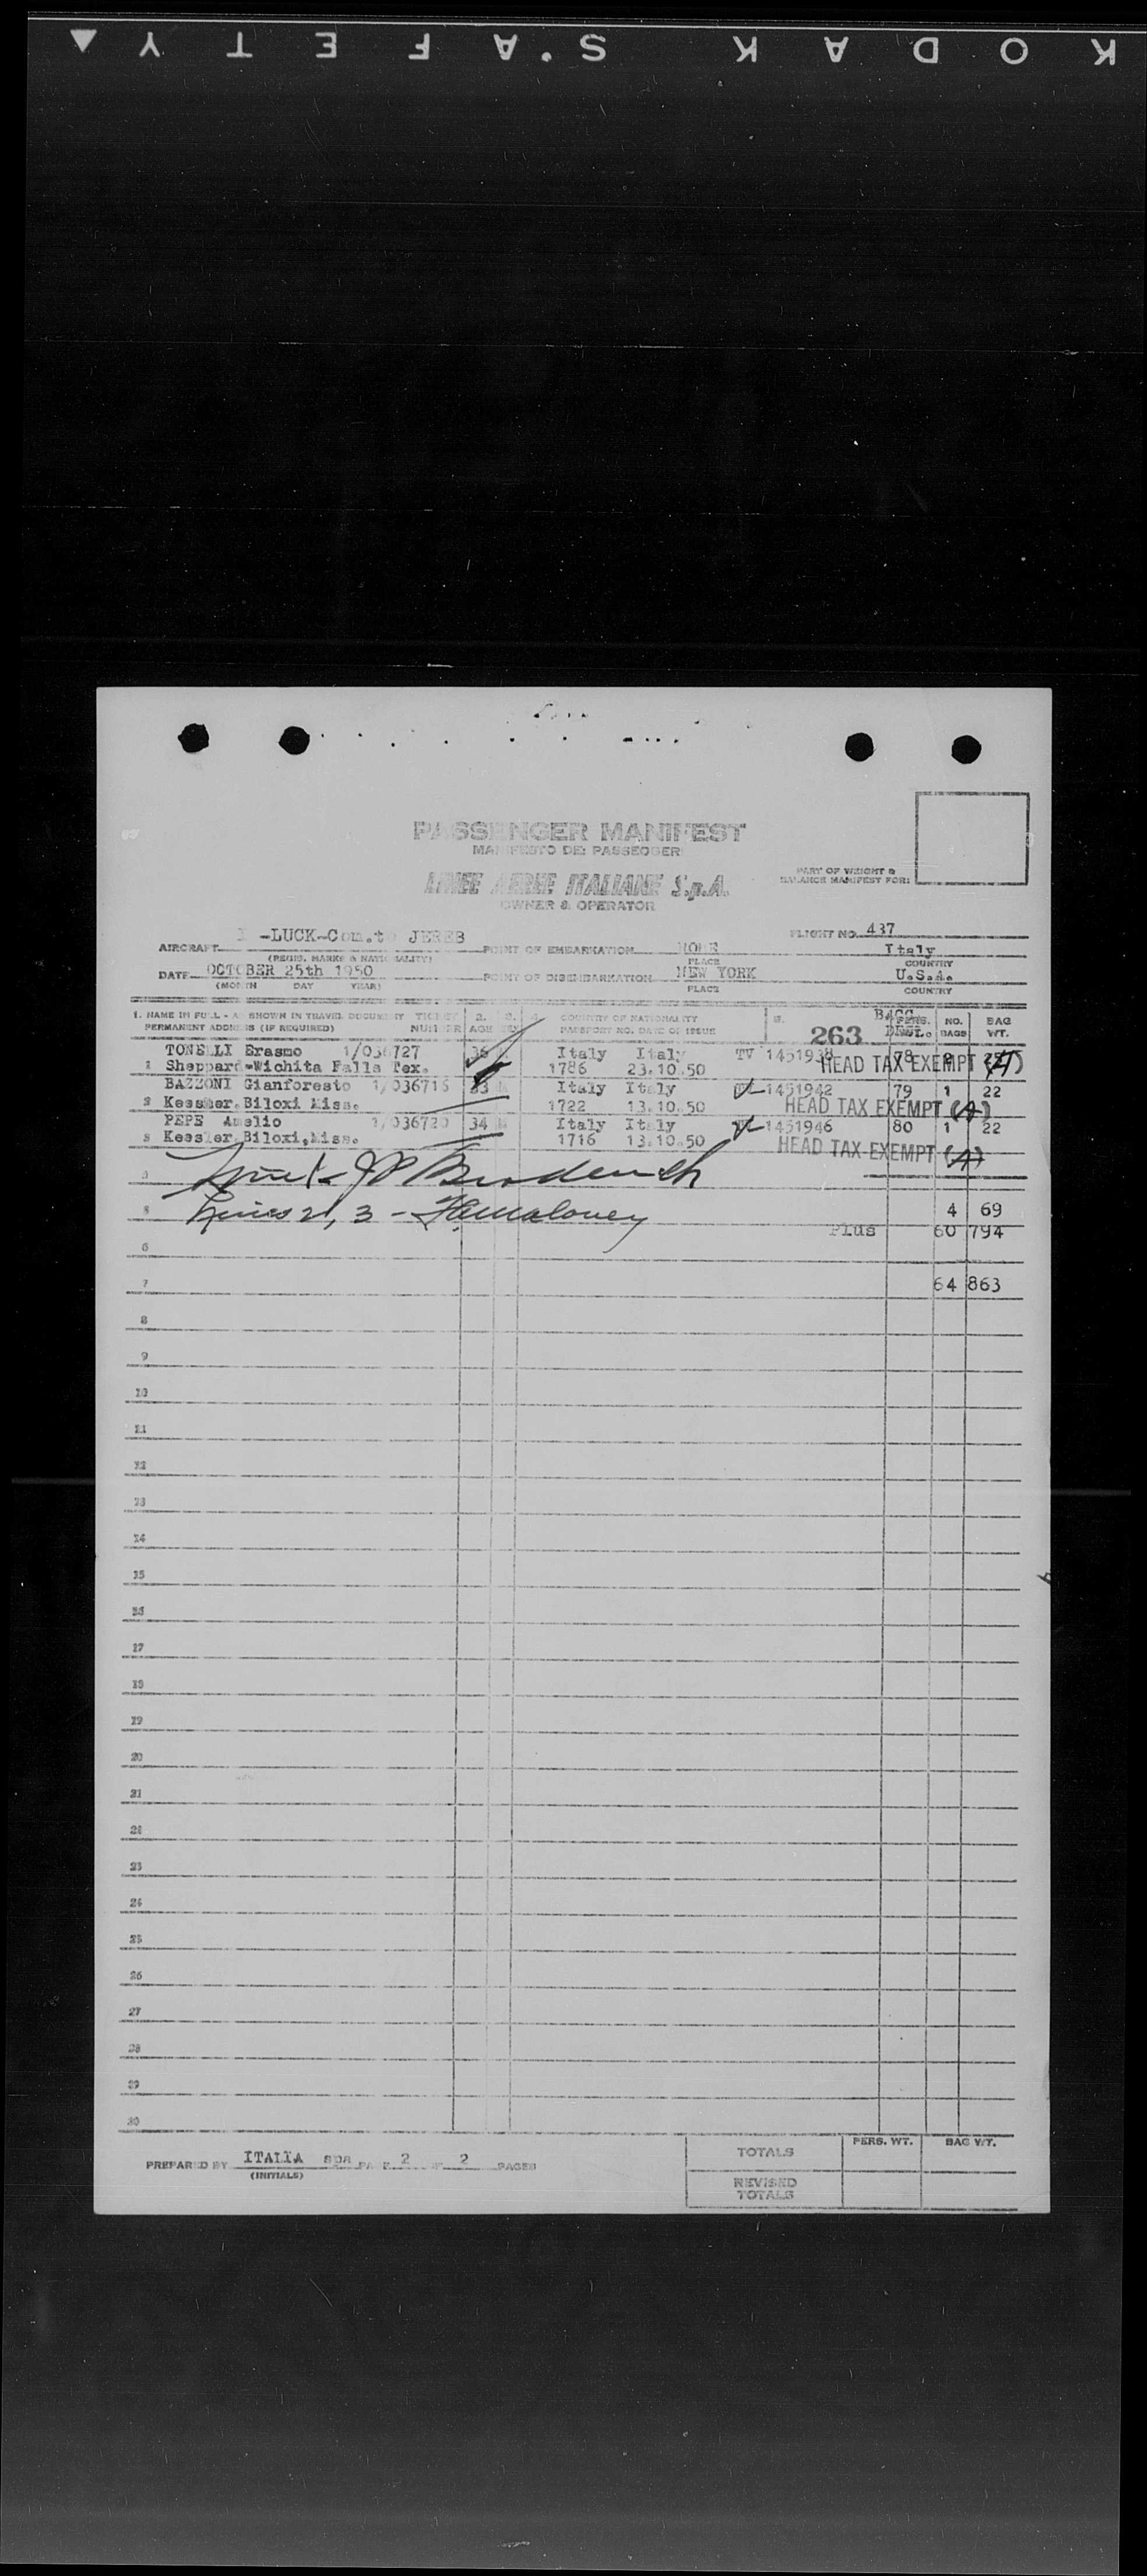 KODAK SAFETY
PASSENGER MANIFEST
MANIFESTO DEI PASSEGGERI
LINEE AEREE ITALIANE S.p.A.
OWNER & OPERATOR
PART OF WEIGHT &
BALANCE MANIFEST FOR:
AIRCRAFT I-LUCK-Com.te JEREB POINT OF EMBARKATION ROME FLIGHT NO. 437 Italy
(REGIS. MARKS & NATIONALITY) PLACE COUNTRY
DATE OCTOBER 25th 1950 POINT OF DISEMBARKATION NEW YORK U.S.A.
(MONTH DAY YEAR) PLACE COUNTRY
1. NAME IN FULL - AS SHOWN IN TRAVEL DOCUMENT TICKET 2. 3. 4. COUNTRY OF NATIONALITY 5. BAGG. PERS. NO. BAG
PERMANENT ADDRESS (IF REQUIRED) NUMBER AGE SEX PASSPORT NO. DATE OF ISSUE 263 WT. BAGS WT.
TONELLI Erasmo 1/036727 36 Italy Italy TV 1451938 78 2 25
1 Sheppard-Wichita Falls Tex. 1786 23.10.50 HEAD TAX EXEMPT (A)
BAZZONI Gianforesto 1/036716 Italy Italy 1451942 79 1 22
2 Kessler.Biloxi Miss. 1722 13.10.50 HEAD TAX EXEMPT (A)
PEPE Amelio 1/036720 34 M Italy Italy 1451946 80 1 22
3 Kessler Biloxi,Miss. 1716 13.10.50 HEAD TAX EXEMPT (A)
5 Lines 2, 3 - Maloney 4 69
Plus 60 794
6
7 64 863
8
9
10
11
12
13
14
15
16
17
18
19
20
21
22
23
24
25
26
27
28
29
30
PREPARED BY ITALIA spa PAGE 2 OF 2 PAGES
(INITIALS)
TOTALS PERS. WT. BAG WT.
REVISED
TOTALS